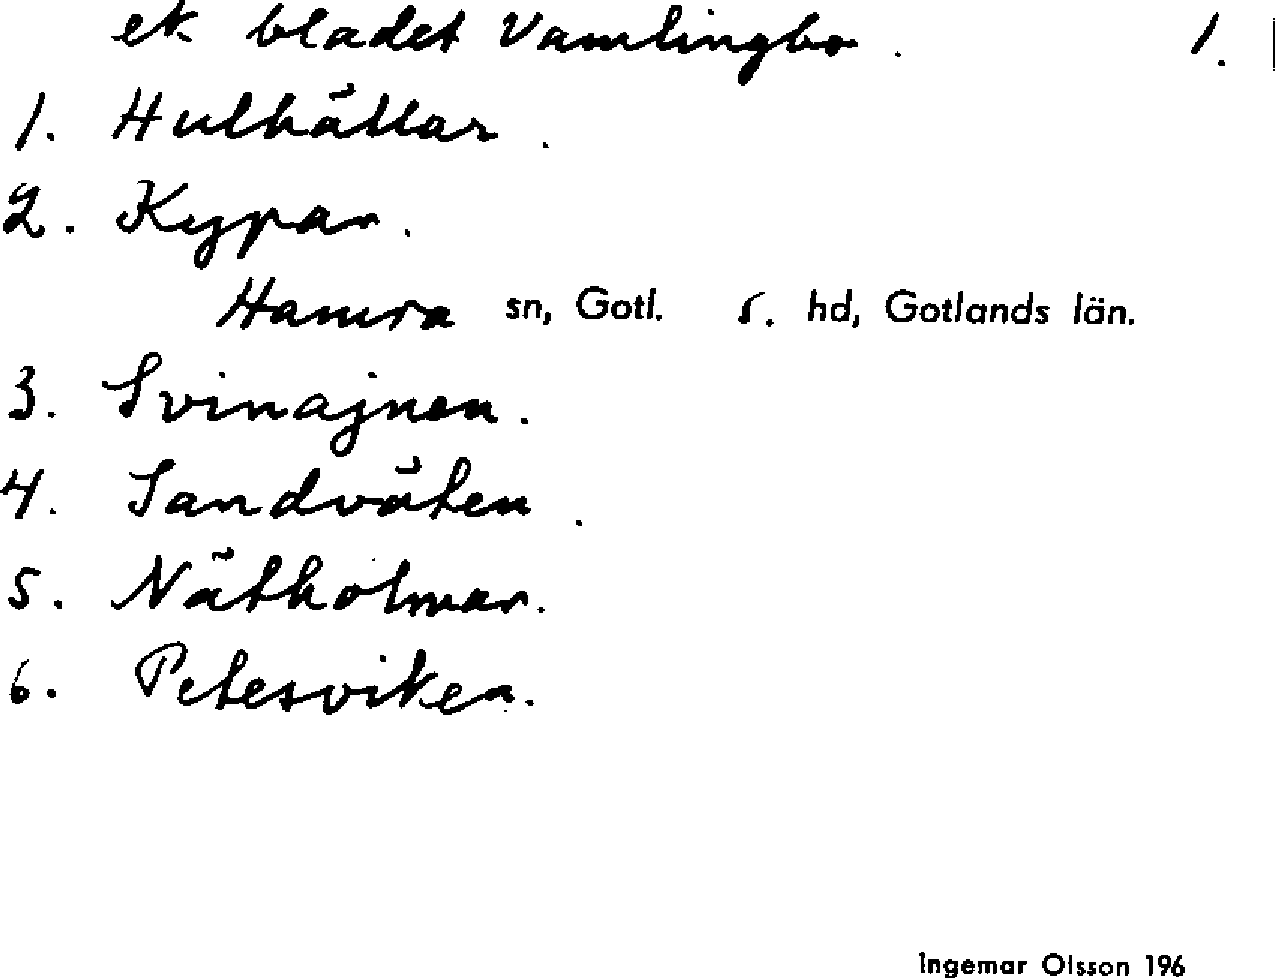 ek bladet Vamlingbo. 1.
1. Hulhällar.
2. Kypar.
Hamra sn, Gotl. s. hd, Gotlands län.
3. Svinajnen.
4. Sandväten.
5. Nätholmar.
6. Petesviken.
Ingemar Olsson 196